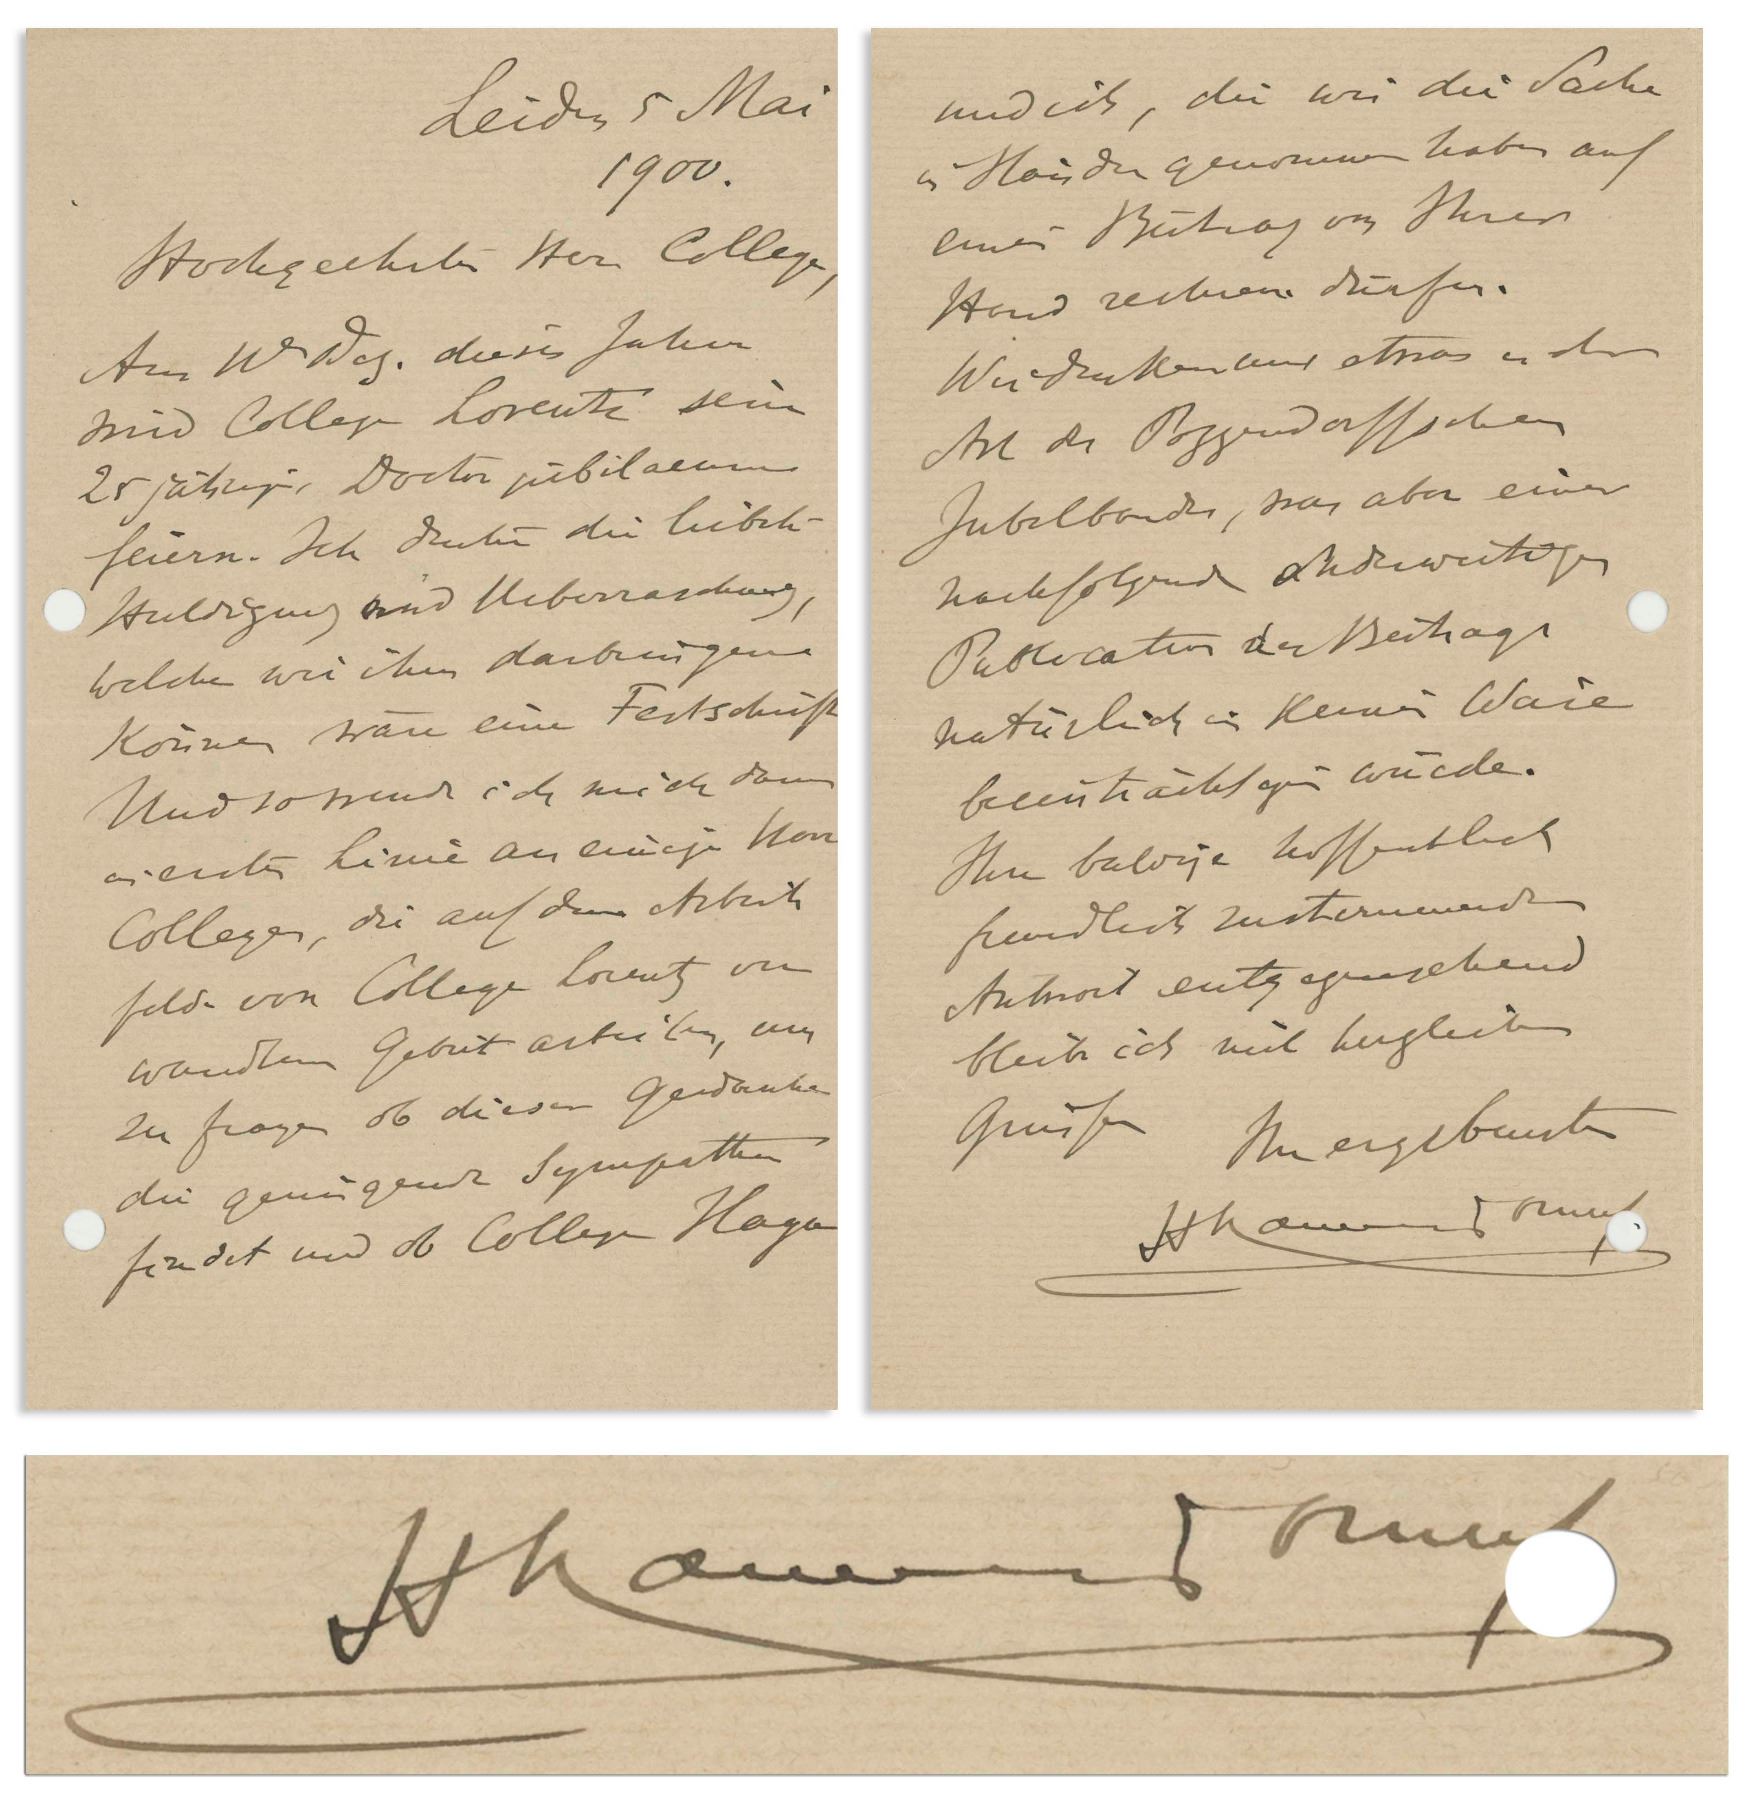 Leiden 5 Mai
1900.
Hochgeehrter Herr College,
Am 11 Dez. dieses Jahres
wird College Lorentz sein
25 jähriges Doctorjubilaeum
feiern. Ich dachte die liebste
Huldigung und Ueberraschung,
welche wir ihm darbringen
können wäre eine Festschrift
Und so wende ich mich dann
in erster Linie an einige Herr
Collegen, die auf dem Arbeits
felde von College Lorentz ver
wandtem Gebiet arbeiten, um
zu fragen ob dieser Gedanke
die genügende Sympathie
findet und ob College Haga
und ich, die wir die Sache
in Händen genommen haben auf
einen Beitrag von Ihrer
Hand rechnen dürfen.
Wir denken uns etwas in der
Art des Poggendorffschen
Jubelbandes, was aber einer
nachfolgende anderweitigen
Publication des Beitrags
natürlich in keiner Weise
beeinträchtigen würde.
Ihre baldige hoffentlich
freundlich zustimmende
Antwort entgegensehend
bleibe ich mit herzlichen
Grüssen Ihr ergebenster
H Kamerlingh Onnes
H Kamerlingh Onnes